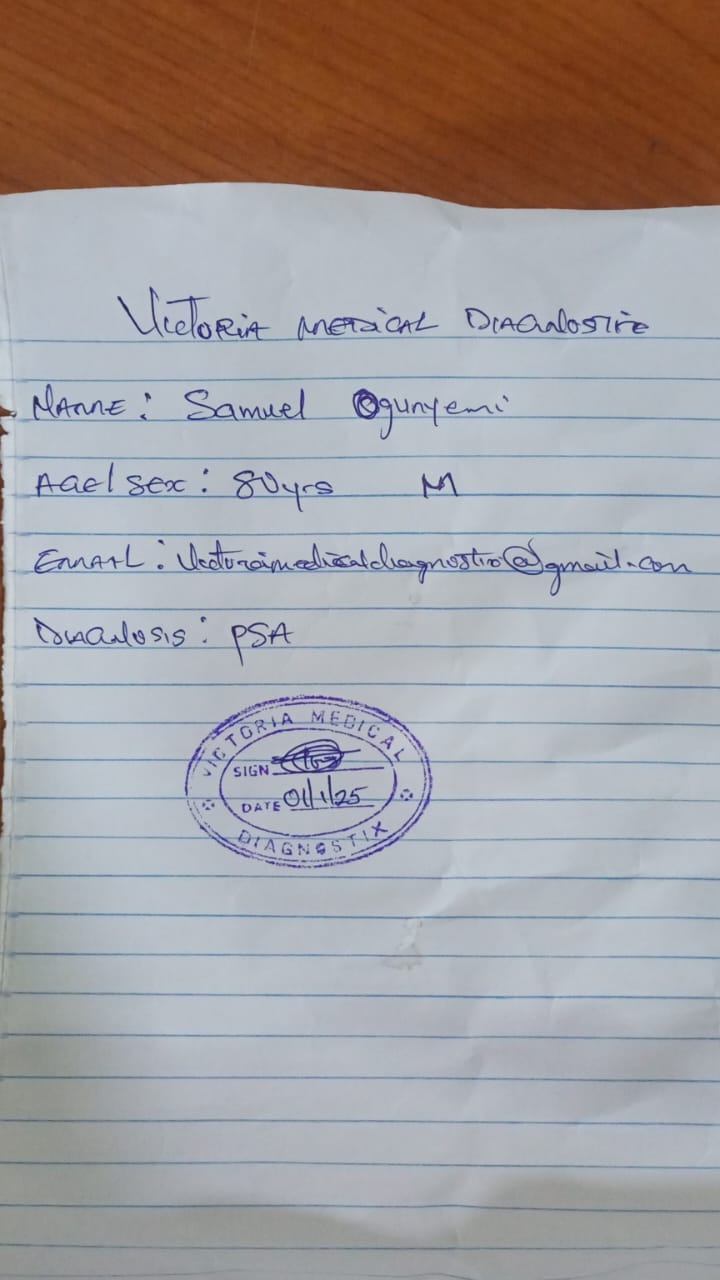 VICTORIA MEDICAL DIAGNOSTIC
NAME: Samuel Ogunyemi
Age/sex: 80yrs M
EMAIL: Victoriamedicaldiagnostic@gmail.com
DIAGNOSIS: PSA
VICTORIA MEDICAL
SIGN
DATE 01/1/25
DIAGNOSTIX